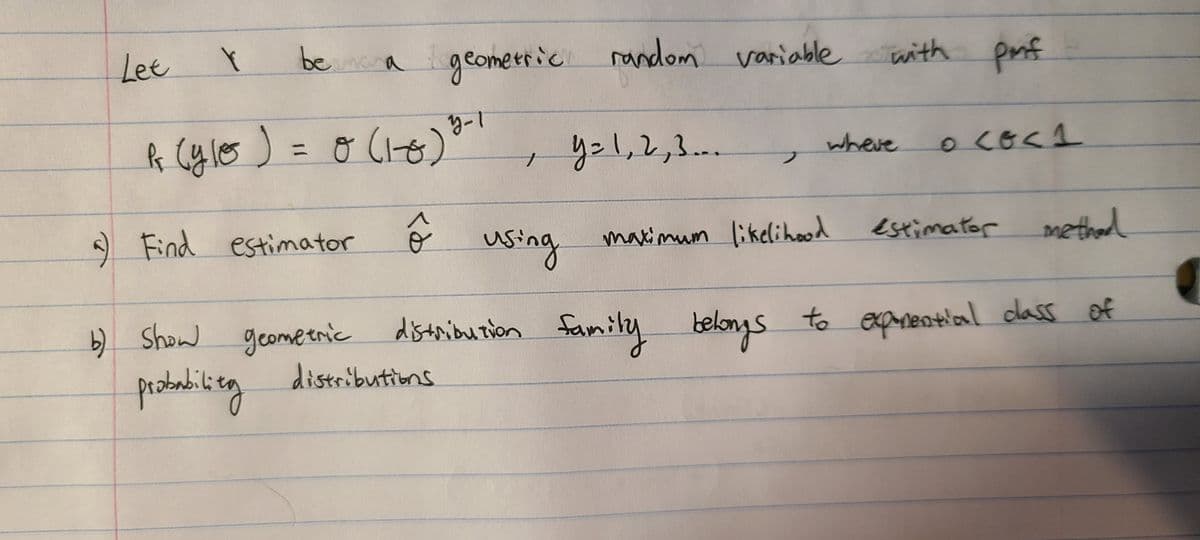 Let Y be a geometric random variable with pmf
Pr (y|θ) = θ (1-θ)^y-1 , y=1,2,3... , where 0<θ<1
a) Find estimator θ̂ using maximum likelihood estimator method
b) Show geometric distribution family belongs to exponential class of
probability distributions